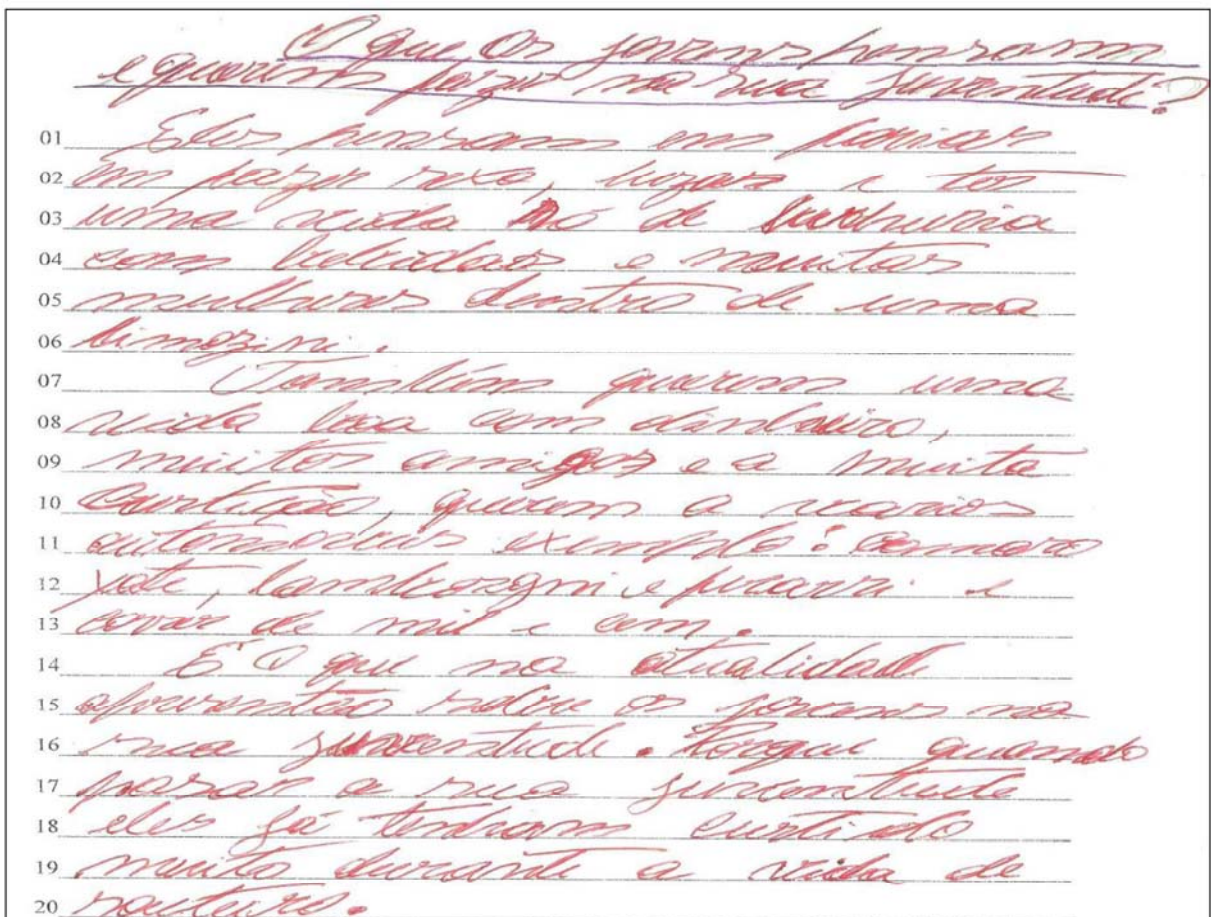 O que Os jovens pensam
e querem fazer na sua juventude?
01 Eles pensam em
02 em fazer sexo, e ter
03 uma vida só de
04 com bebidas e muitas
05 mulheres dentro de uma
06 limozini.
07 Também querem uma
08 vida boa com dinheiro,
09 muitos amigos e a muita
10 Curtição, querem a varios
11 automovéis exemplo: cammaro
12 yate, e
13 de mil e cem.
14 É O que na atualidade
15 sobre os jovens na
16 sua juventude. Porque quando
17 pasar a sua juventude
18 eles já tenham curtido
19 muito durante a vida de
20 souteiro.